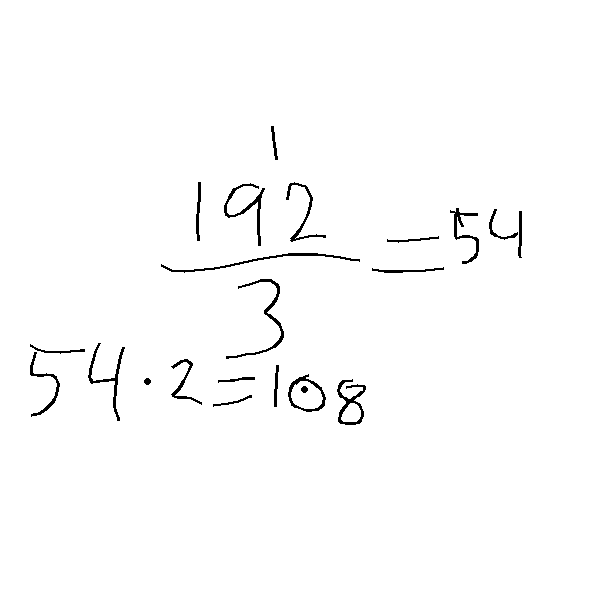 1
192
/3 = 54
54 · 2 = 108